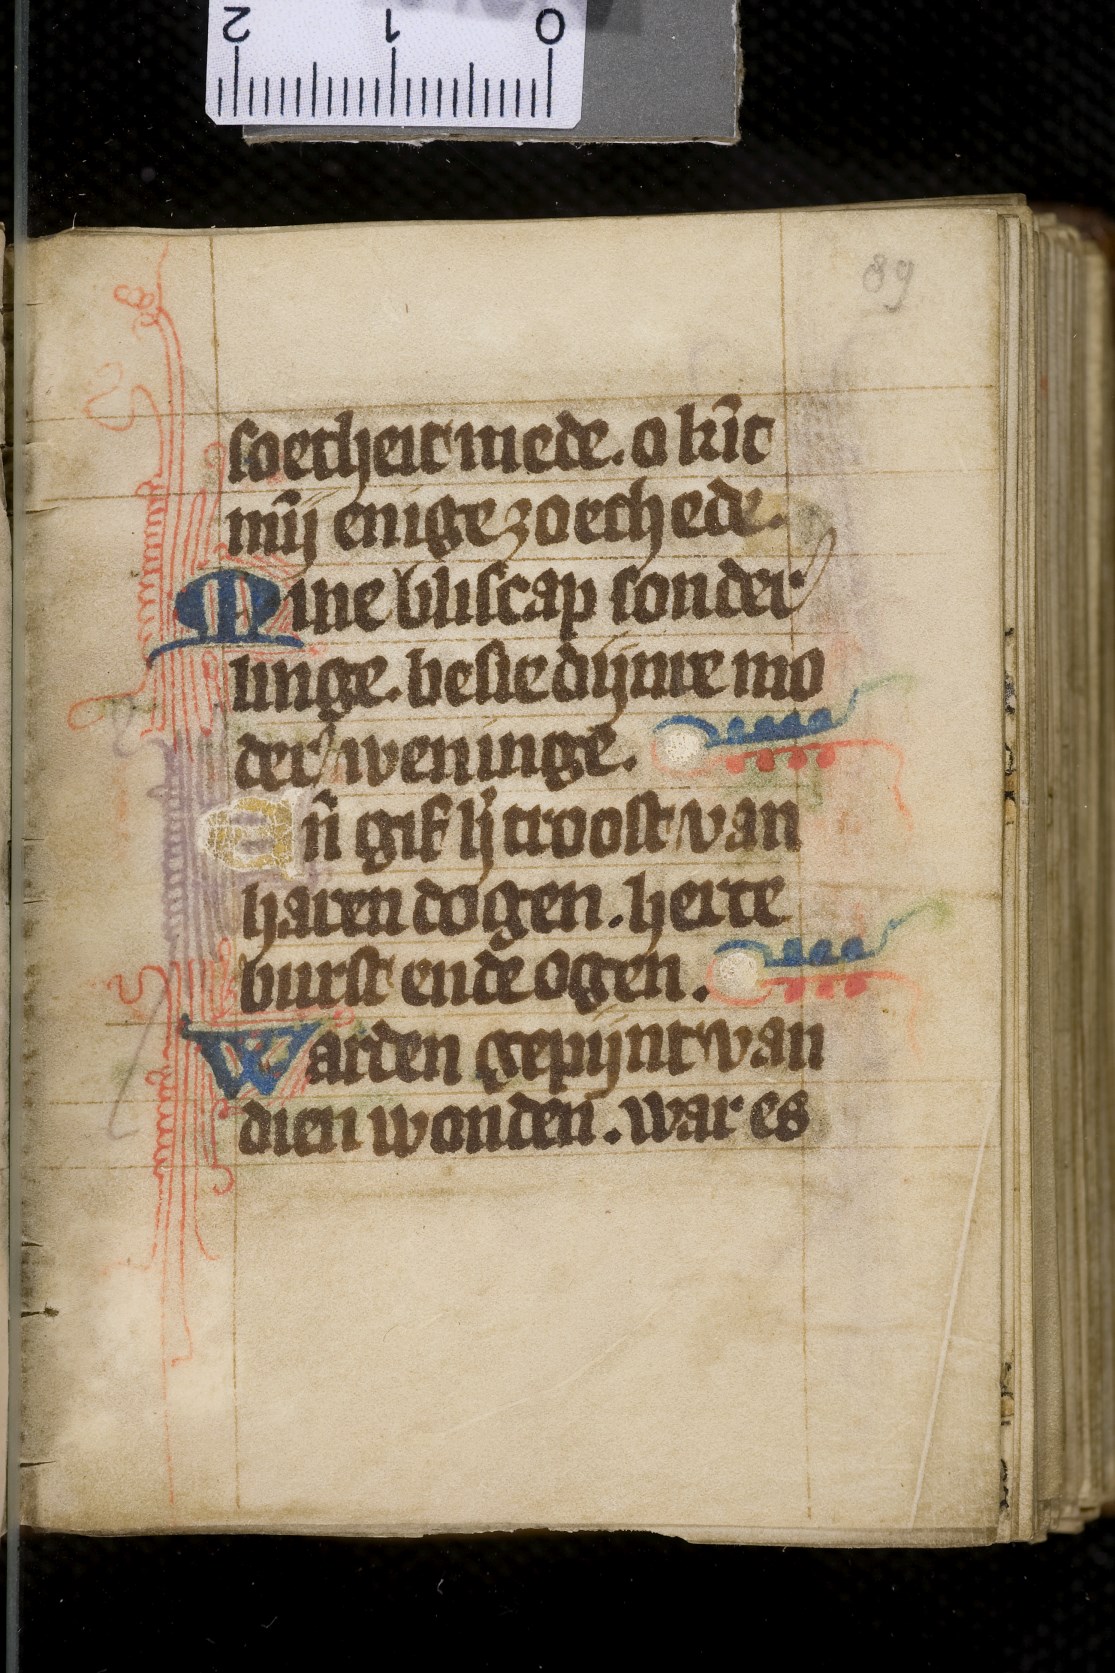 2 1 0
89
soetheit mede. o kīt
mīj enige zoethede.
Mine bliscap sonder
linge. besie dijnre mo
der weninge.
En̄ gif hr̄ troost van
haren dogen. herte
burst ende ogen.
Warden gepijnt van
dien wonden. war es